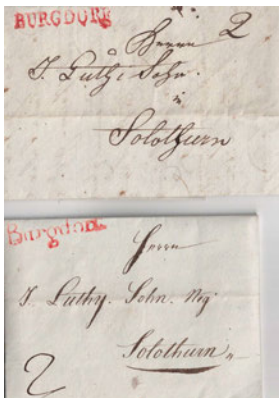 BURGDORF
Herrn 2
J. Luthi Sohn.
in
Solothurn
Burgdorf
Herrn
J. Luthy. Sohn. Neg
Solothurn
2